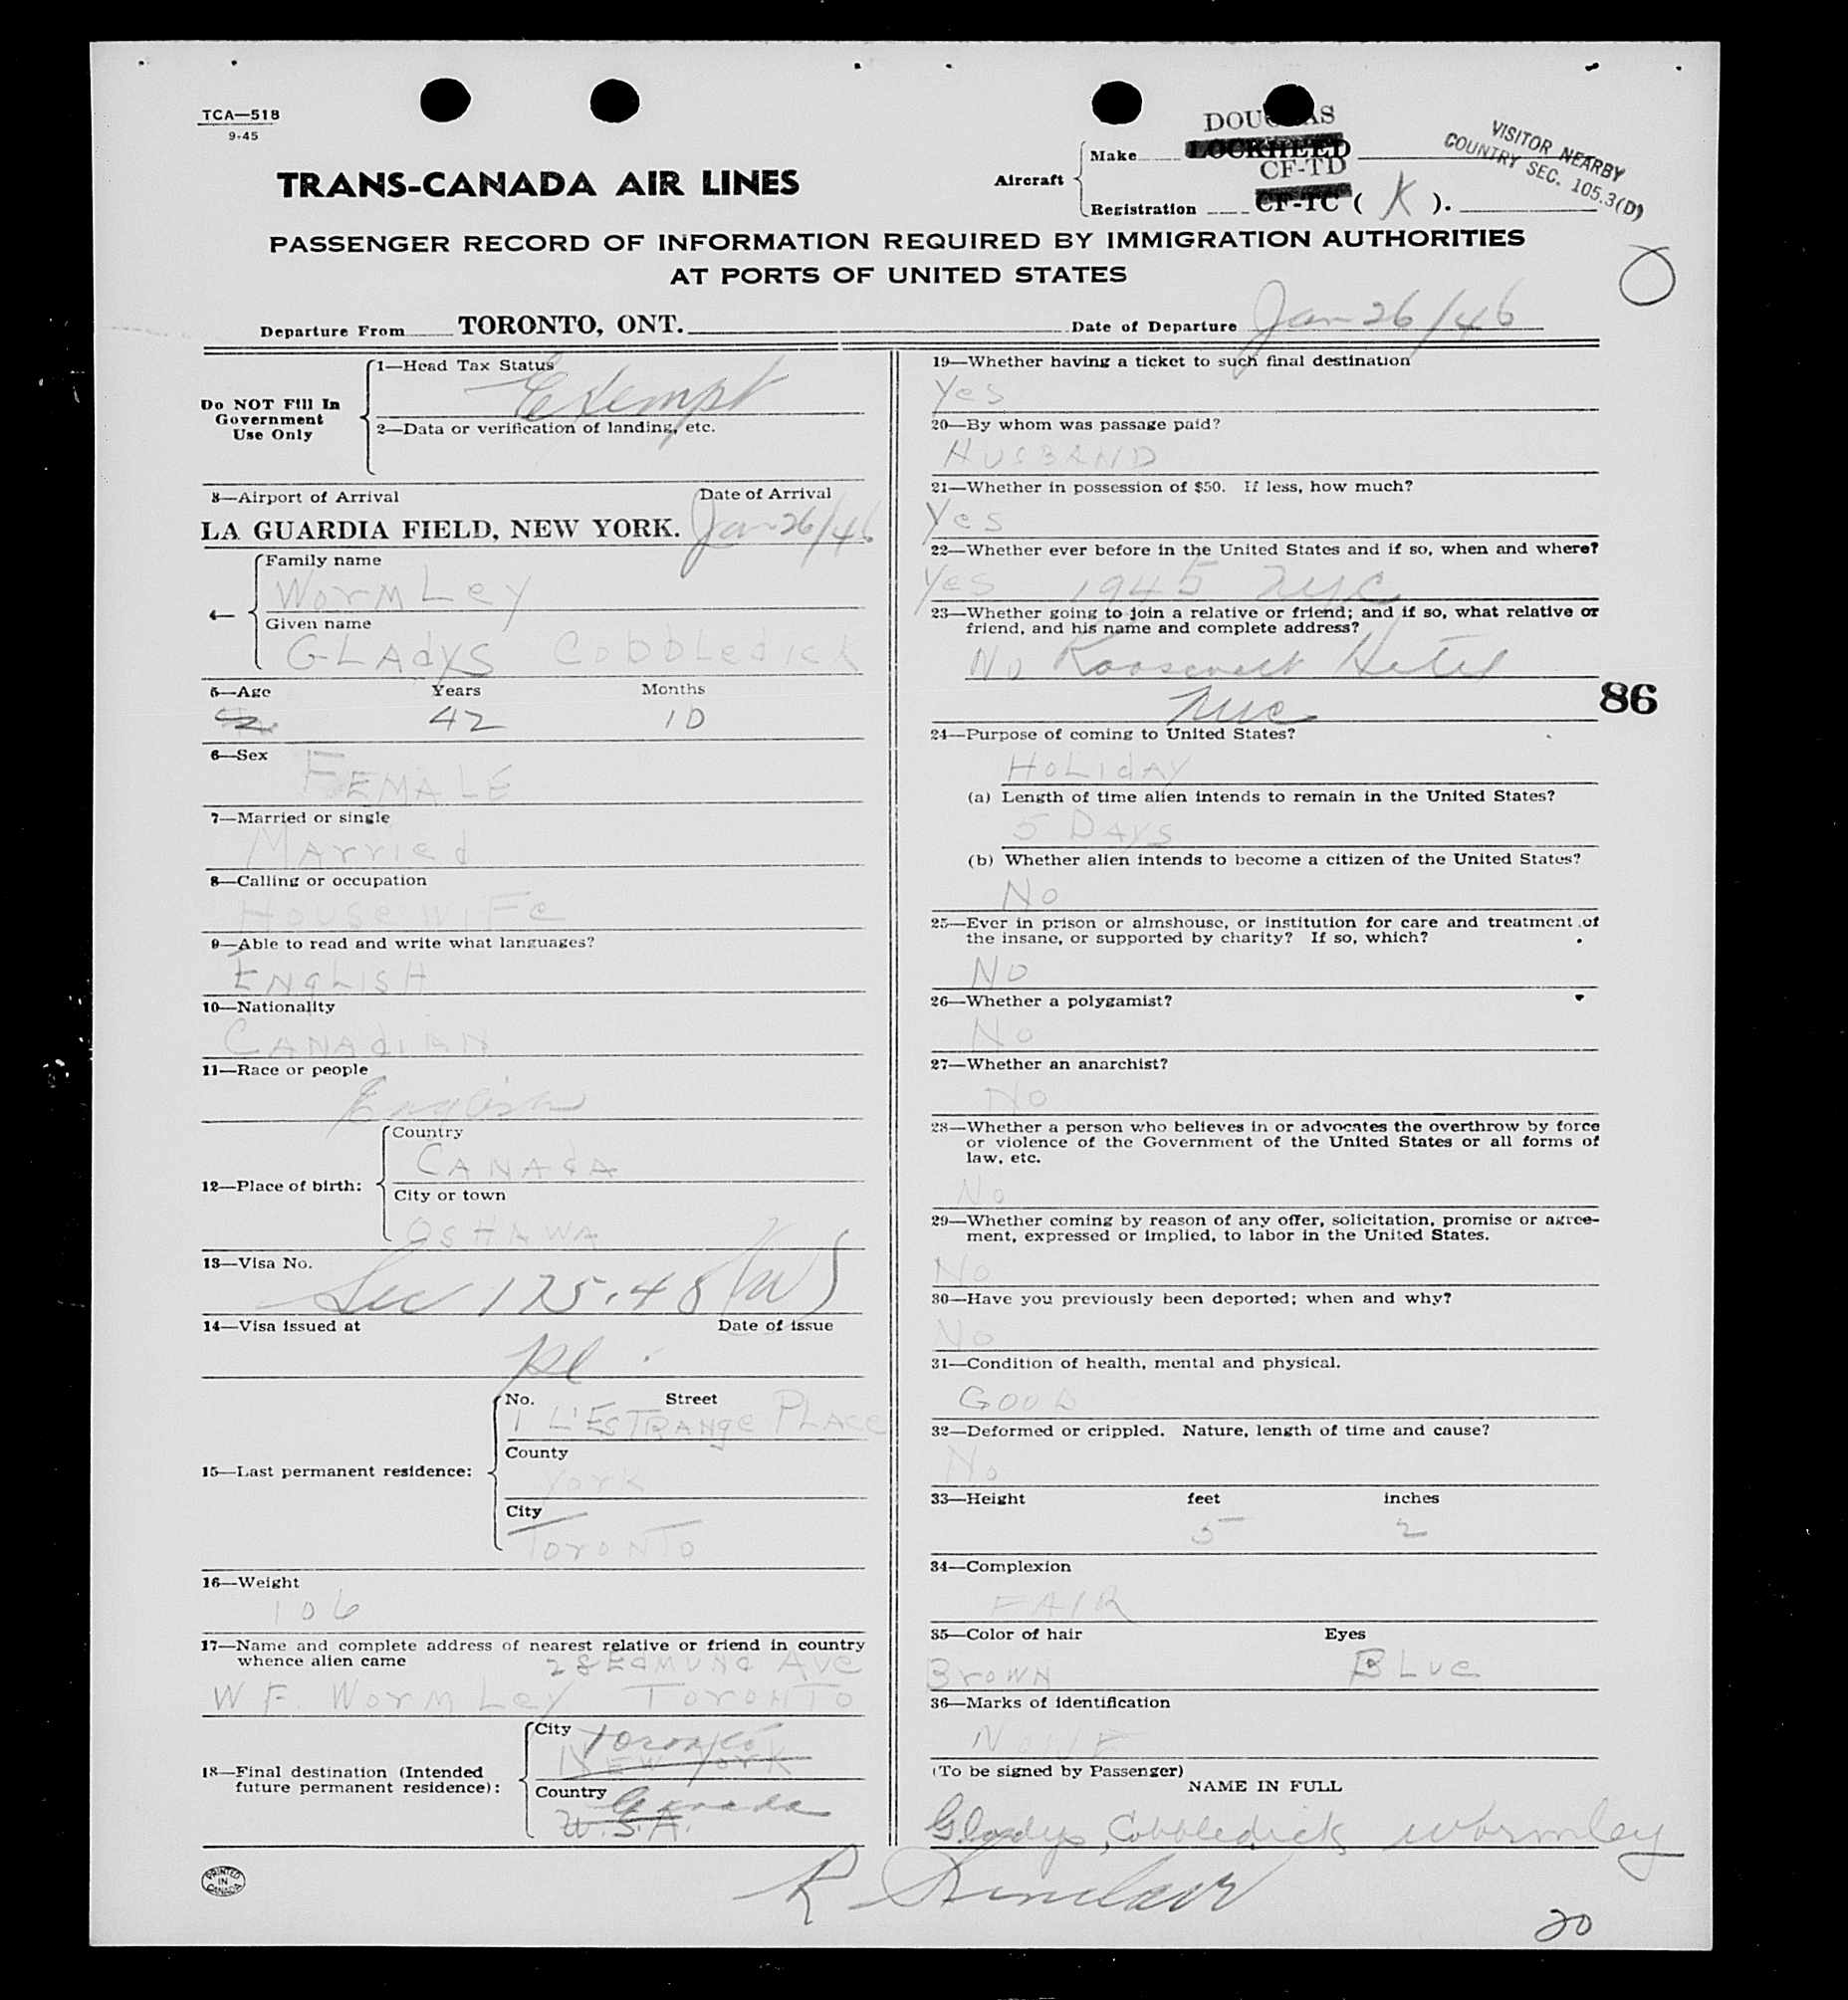 TCA—518
9-45
DOUGLAS
VISITOR NEARBY
COUNTRY SEC. 105.3(D)
Make LOCKHEED
Aircraft
CF-TD
Registration CF-TC ( K ).
TRANS-CANADA AIR LINES
PASSENGER RECORD OF INFORMATION REQUIRED BY IMMIGRATION AUTHORITIES
AT PORTS OF UNITED STATES
Departure From TORONTO, ONT. Date of Departure Jan 26/46
Do NOT Fill In
Government
Use Only
1—Head Tax Status
Exempt
2—Data or verification of landing, etc.
3—Airport of Arrival Date of Arrival
LA GUARDIA FIELD, NEW YORK. Jan 26/46
4—
Family name
WormLey
Given name
GLAdys CobbLedick
5—Age Years Months
42 10
6—Sex
FEMALE
7—Married or single
Married
8—Calling or occupation
HousewiFe
9—Able to read and write what languages?
ENgLISH
10—Nationality
CANAdiAN
11—Race or people
English
12—Place of birth:
Country
CANAdA
City or town
OSHAWA
13—Visa No.
Sec 175.48 (W)
14—Visa issued at Date of issue
15—Last permanent residence:
No. Street
1 L'ESTRANge PLAce
County
York
City
ToroNTo
16—Weight
106
17—Name and complete address of nearest relative or friend in country
whence alien came
28 EdMUNd AVe
W F. WormLey ToroNTo
18—Final destination (Intended
future permanent residence):
City Toronto
NEW York
Country Canada
U.S.A.
19—Whether having a ticket to such final destination
Yes
20—By whom was passage paid?
HUSBAND
21—Whether in possession of $50. If less, how much?
Yes
22—Whether ever before in the United States and if so, when and where?
Yes 1945 NYC
23—Whether going to join a relative or friend; and if so, what relative or
friend, and his name and complete address?
No Roosevelt Hotel
NYC
86
24—Purpose of coming to United States?
HoLidAY
(a) Length of time alien intends to remain in the United States?
5 DAYS
(b) Whether alien intends to become a citizen of the United States?
No
25—Ever in prison or almshouse, or institution for care and treatment of
the insane, or supported by charity? If so, which?
No
26—Whether a polygamist?
No
27—Whether an anarchist?
No
28—Whether a person who believes in or advocates the overthrow by force
or violence of the Government of the United States or all forms of
law, etc.
No
29—Whether coming by reason of any offer, solicitation, promise or agree-
ment, expressed or implied, to labor in the United States.
No
30—Have you previously been deported; when and why?
No
31—Condition of health, mental and physical.
GOOD
32—Deformed or crippled. Nature, length of time and cause?
No
33—Height feet inches
5 2
34—Complexion
FAIR
35—Color of hair Eyes
BrowN BLue
36—Marks of identification
NONE
(To be signed by Passenger)
NAME IN FULL
Gladys Cobbledick Wormley
R Sinclair
PRINTED
IN
CANADA
20